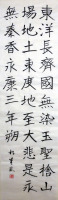 東洋長齊國無染玉聖捨山
場地土東度地至大悲是永
無眷香永康三年朔